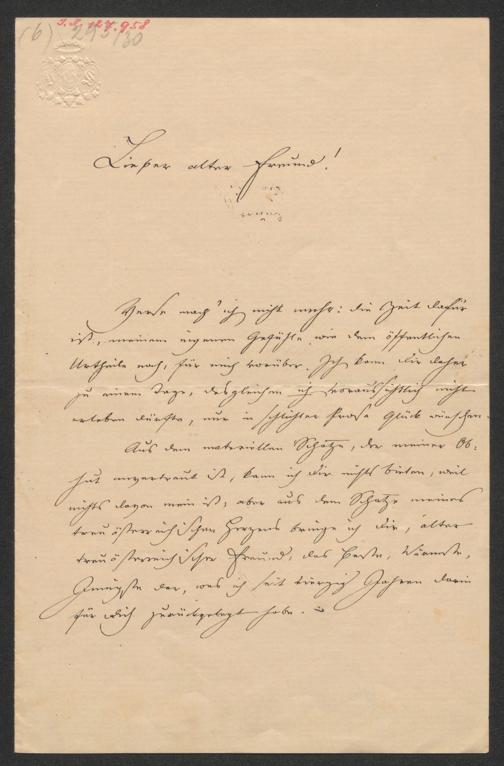 I.N. 127.958
(6) 295/30
Lieber alter Freund!
Verse mach' ich nicht mehr: die Zeit dafür
ist, meinem eigenen Gefühle wie dem öffentlichen
Urtheile nach, für mich vorüber. Ich kann Dir daher
zu einem Tage, desgleichen ich voraussichtlich nicht
erleben dürfte, nur in schlichter Prosa Glück wünschen.
Aus dem materiellen Schatze, der meiner Ob-
hut anvertraut ist, kann ich Dir nichts bieten, weil
nichts davon mein ist; aber aus dem Schatze meines
treuösterreichischen Herzens bringe ich Dir, alter
treuösterreichischer Freund, das Beste, Wärmste,
Innigste dar, was ich seit vierzig Jahren darin
für Dich zurückgelegt habe.